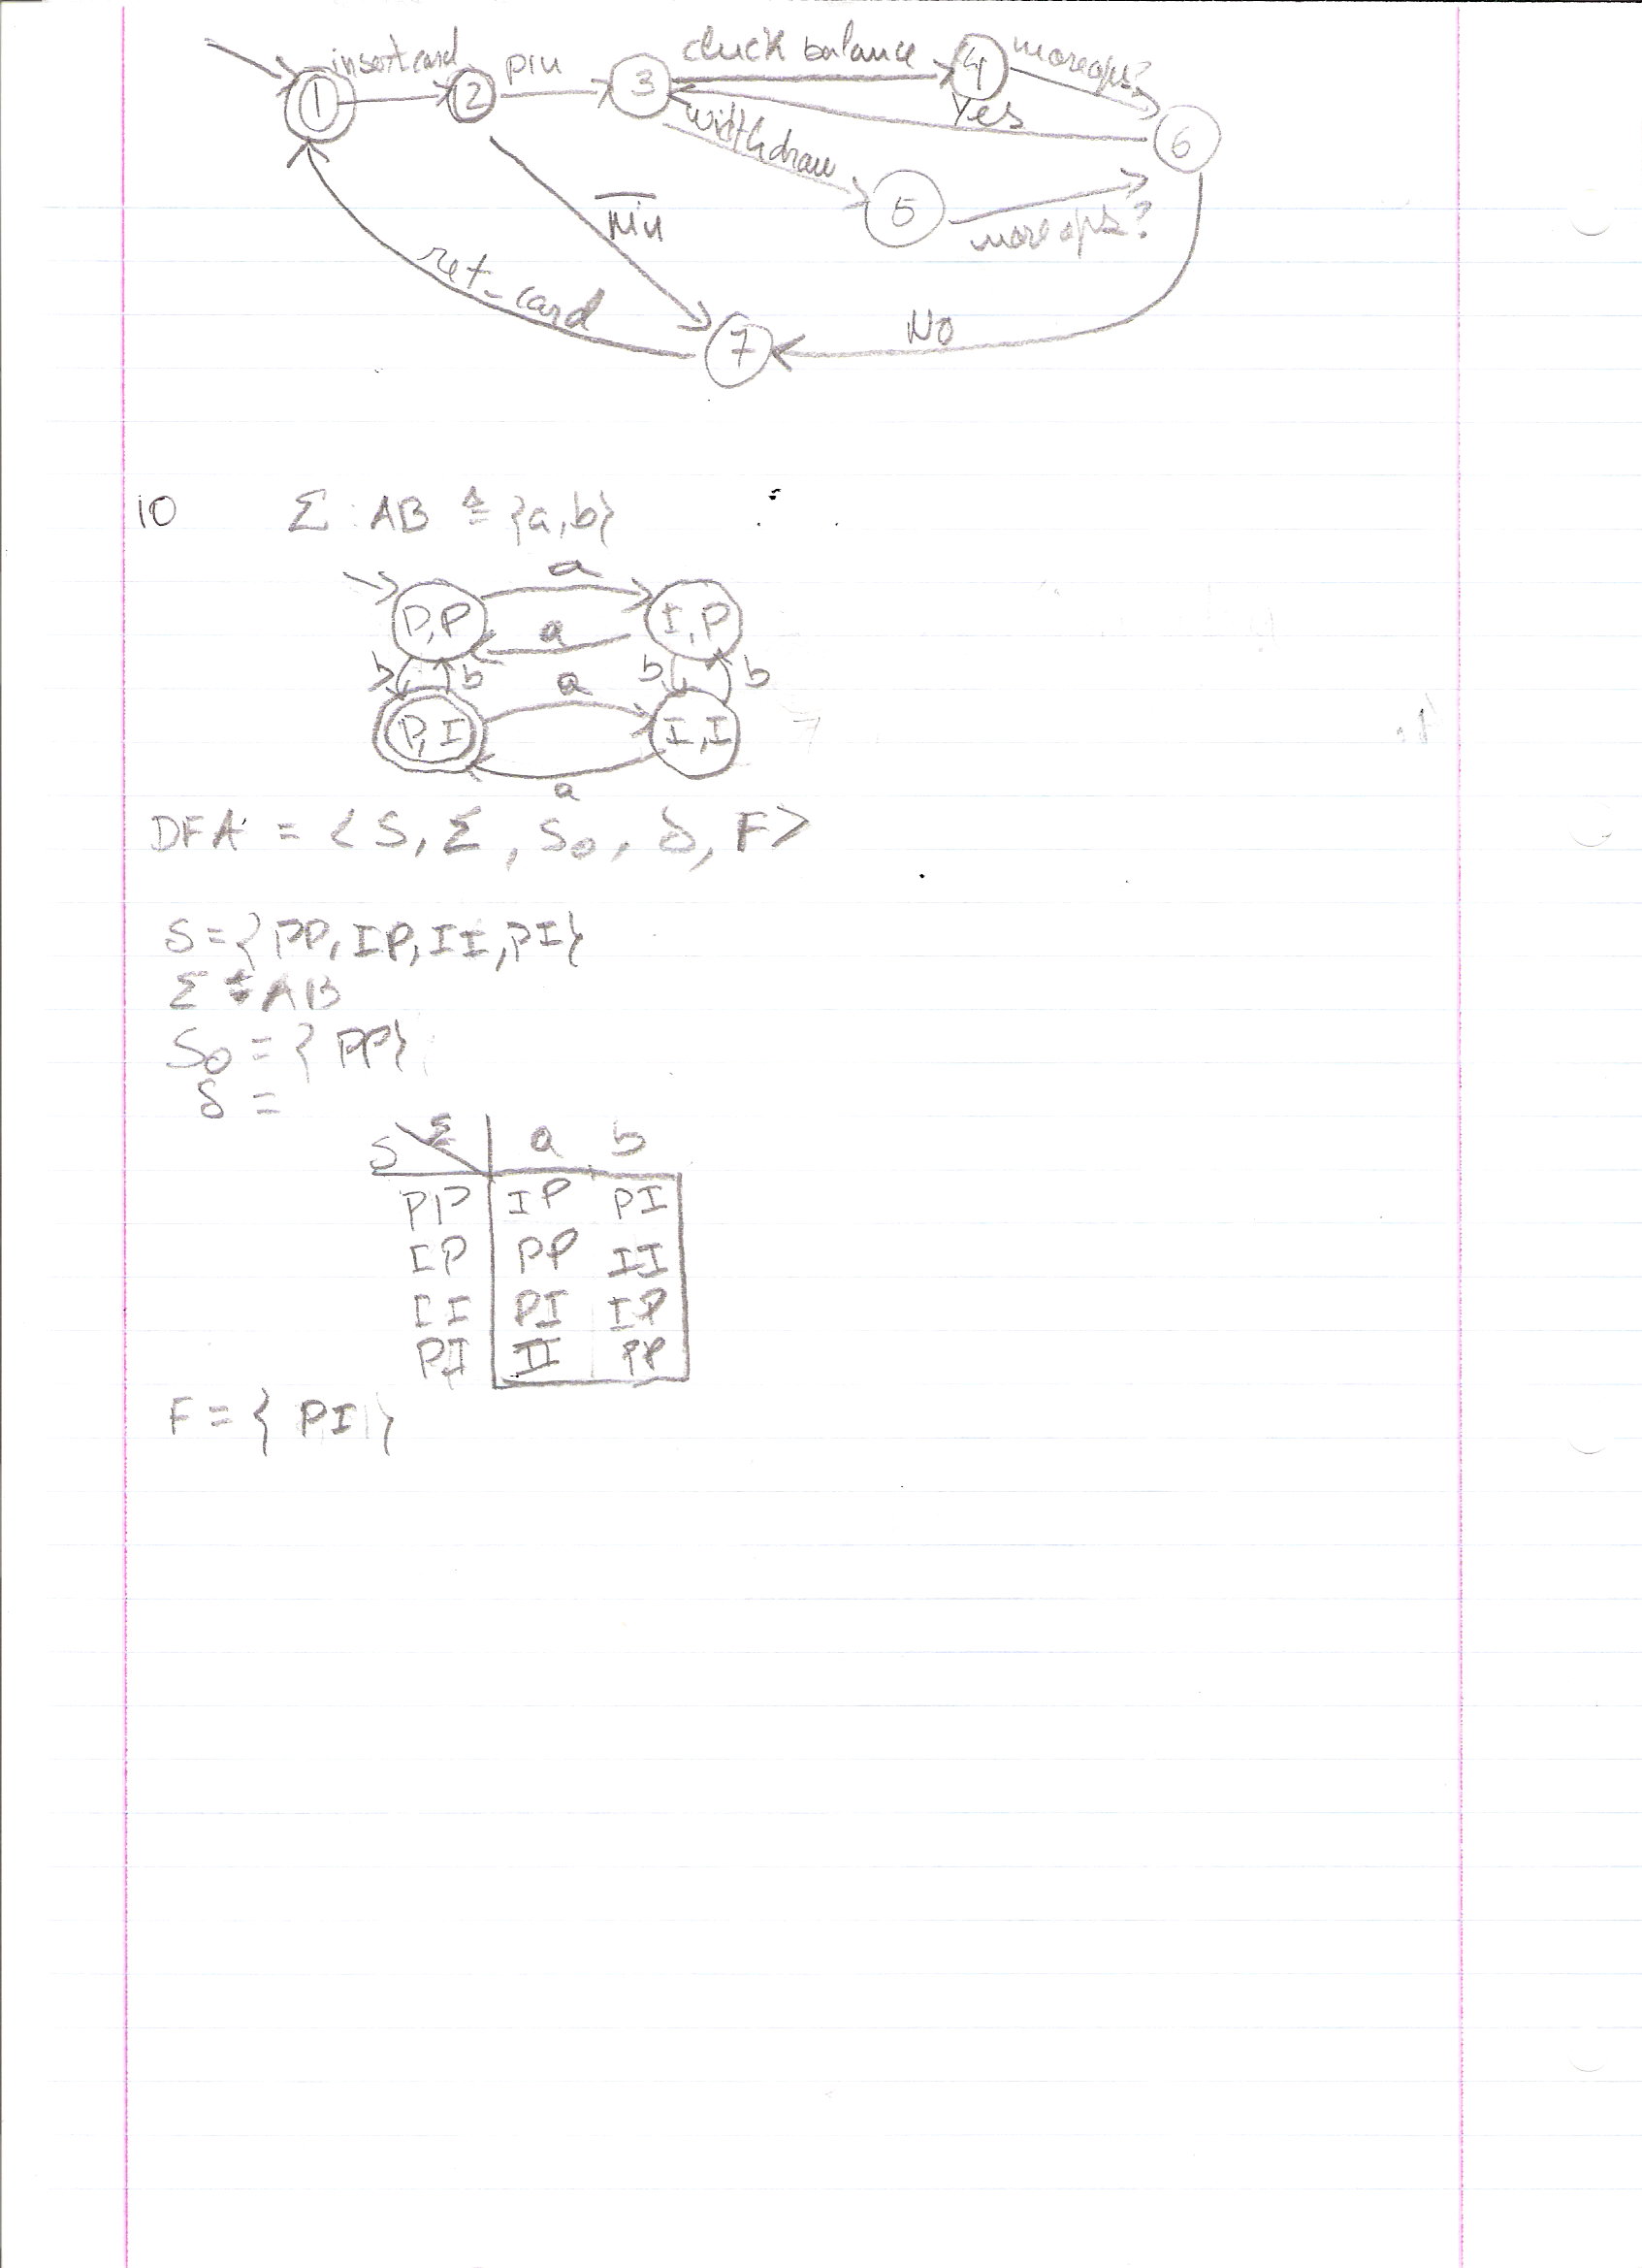 insert card pin check balance more ops?
1 2 3 4
Yes 6
withdraw
5
pin more ops?
ret_card
No
7
10 Σ : AB ≙ {a,b}
a
P,P I,P
a
b b b b
a
P,I I,I
a
DFA = < S, Σ, S₀, δ, F>
S = { PP, IP, II, PI}
Σ = AB
S₀ = { PP}
δ =
S Σ a b
PP IP PI
IP PP II
II PI IP
PI II PP
F = { PI }